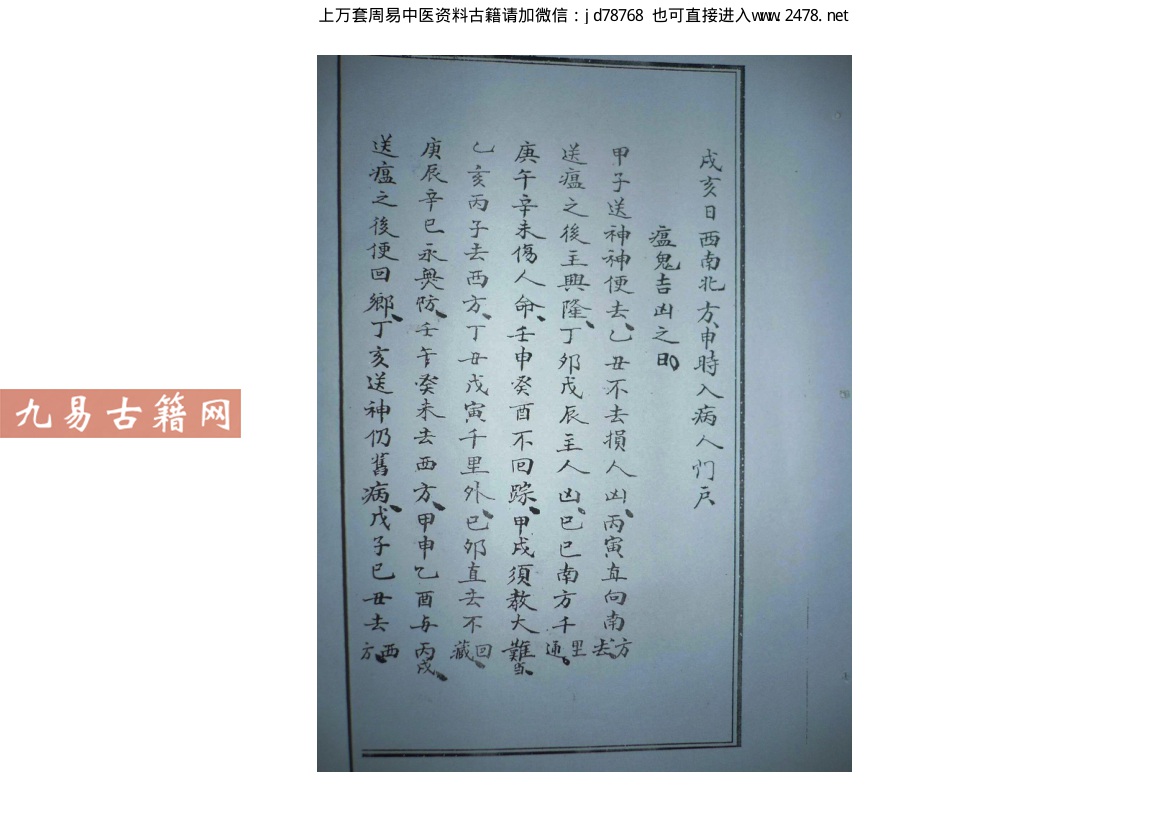 上万套周易中医资料古籍请加微信：jd78768 也可直接进入www.2478.net
戌亥日西南北方、申時入病人门戶
瘟鬼吉凶之日
甲子送神神便去、乙丑不去損人凶、丙寅直向南方去、
送瘟之後主興隆、丁卯戊辰主人凶、己巳南方千里通、
庚午辛未傷人命、壬申癸酉不回踪、甲戌須教大難當、
乙亥丙子去西方、丁丑戊寅千里外、己卯直去不回藏
庚辰辛巳永無防、壬午癸未去西方、甲申乙酉与丙戌、
送瘟之後便回鄉、丁亥送神仍舊病、戊子己丑去西方、
九易古籍网